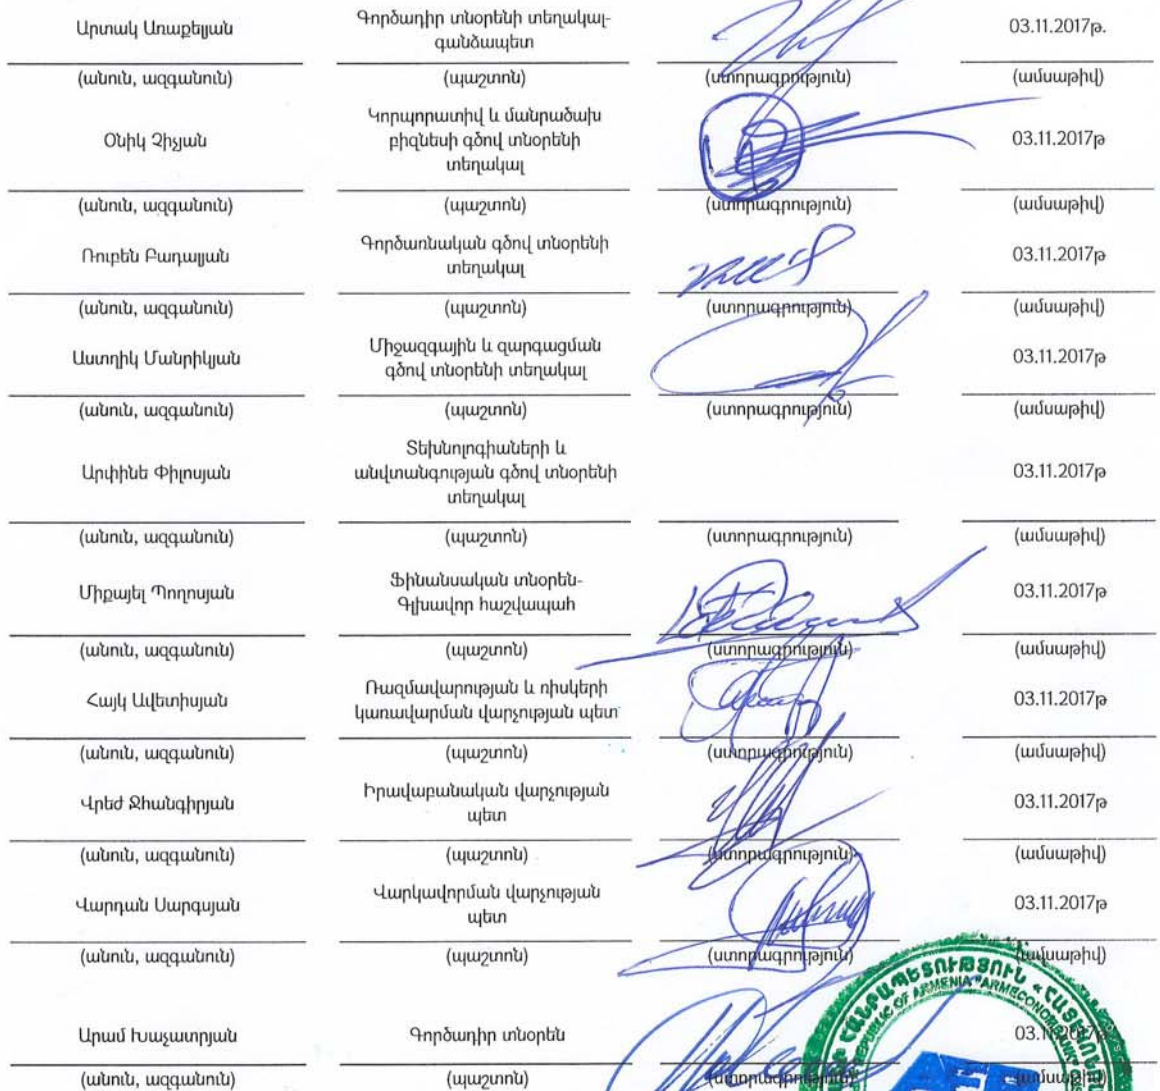 Արտակ Առաքելյան
Գործադիր տնօրենի տեղակալ-
գանձապետ
03.11.2017թ.
(անուն, ազգանուն) (պաշտոն) (ստորագրություն) (ամսաթիվ)
Օնիկ Չիչյան
Կորպորատիվ և մանրածախ
բիզնեսի գծով տնօրենի
տեղակալ
03.11.2017թ
(անուն, ազգանուն) (պաշտոն) (ստորագրություն) (ամսաթիվ)
Ռուբեն Բադալյան
Գործառնական գծով տնօրենի
տեղակալ
03.11.2017թ
(անուն, ազգանուն) (պաշտոն) (ստորագրություն) (ամսաթիվ)
Աստղիկ Մանրիկյան
Միջազգային և զարգացման
գծով տնօրենի տեղակալ
03.11.2017թ
(անուն, ազգանուն) (պաշտոն) (ստորագրություն) (ամսաթիվ)
Արփինե Փիլոսյան
Տեխնոլոգիաների և
անվտանգության գծով տնօրենի
տեղակալ
03.11.2017թ
(անուն, ազգանուն) (պաշտոն) (ստորագրություն) (ամսաթիվ)
Միքայել Պողոսյան
Ֆինանսական տնօրեն-
Գլխավոր հաշվապահ
03.11.2017թ
(անուն, ազգանուն) (պաշտոն) (ստորագրություն) (ամսաթիվ)
Հայկ Ավետիսյան
Ռազմավարության և ռիսկերի
կառավարման վարչության պետ
03.11.2017թ
(անուն, ազգանուն) (պաշտոն) (ստորագրություն) (ամսաթիվ)
Վրեժ Ջհանգիրյան
Իրավաբանական վարչության
պետ
03.11.2017թ
(անուն, ազգանուն) (պաշտոն) (ստորագրություն) (ամսաթիվ)
Վարդան Սարգսյան
Վարկավորման վարչության
պետ
03.11.2017թ
(անուն, ազգանուն) (պաշտոն) (ստորագրություն) (ամսաթիվ)
Արամ Խաչատրյան
Գործադիր տնօրեն
03.11.2017թ
(անուն, ազգանուն) (պաշտոն) (ստորագրություն) (ամսաթիվ)
OF ARMENIA